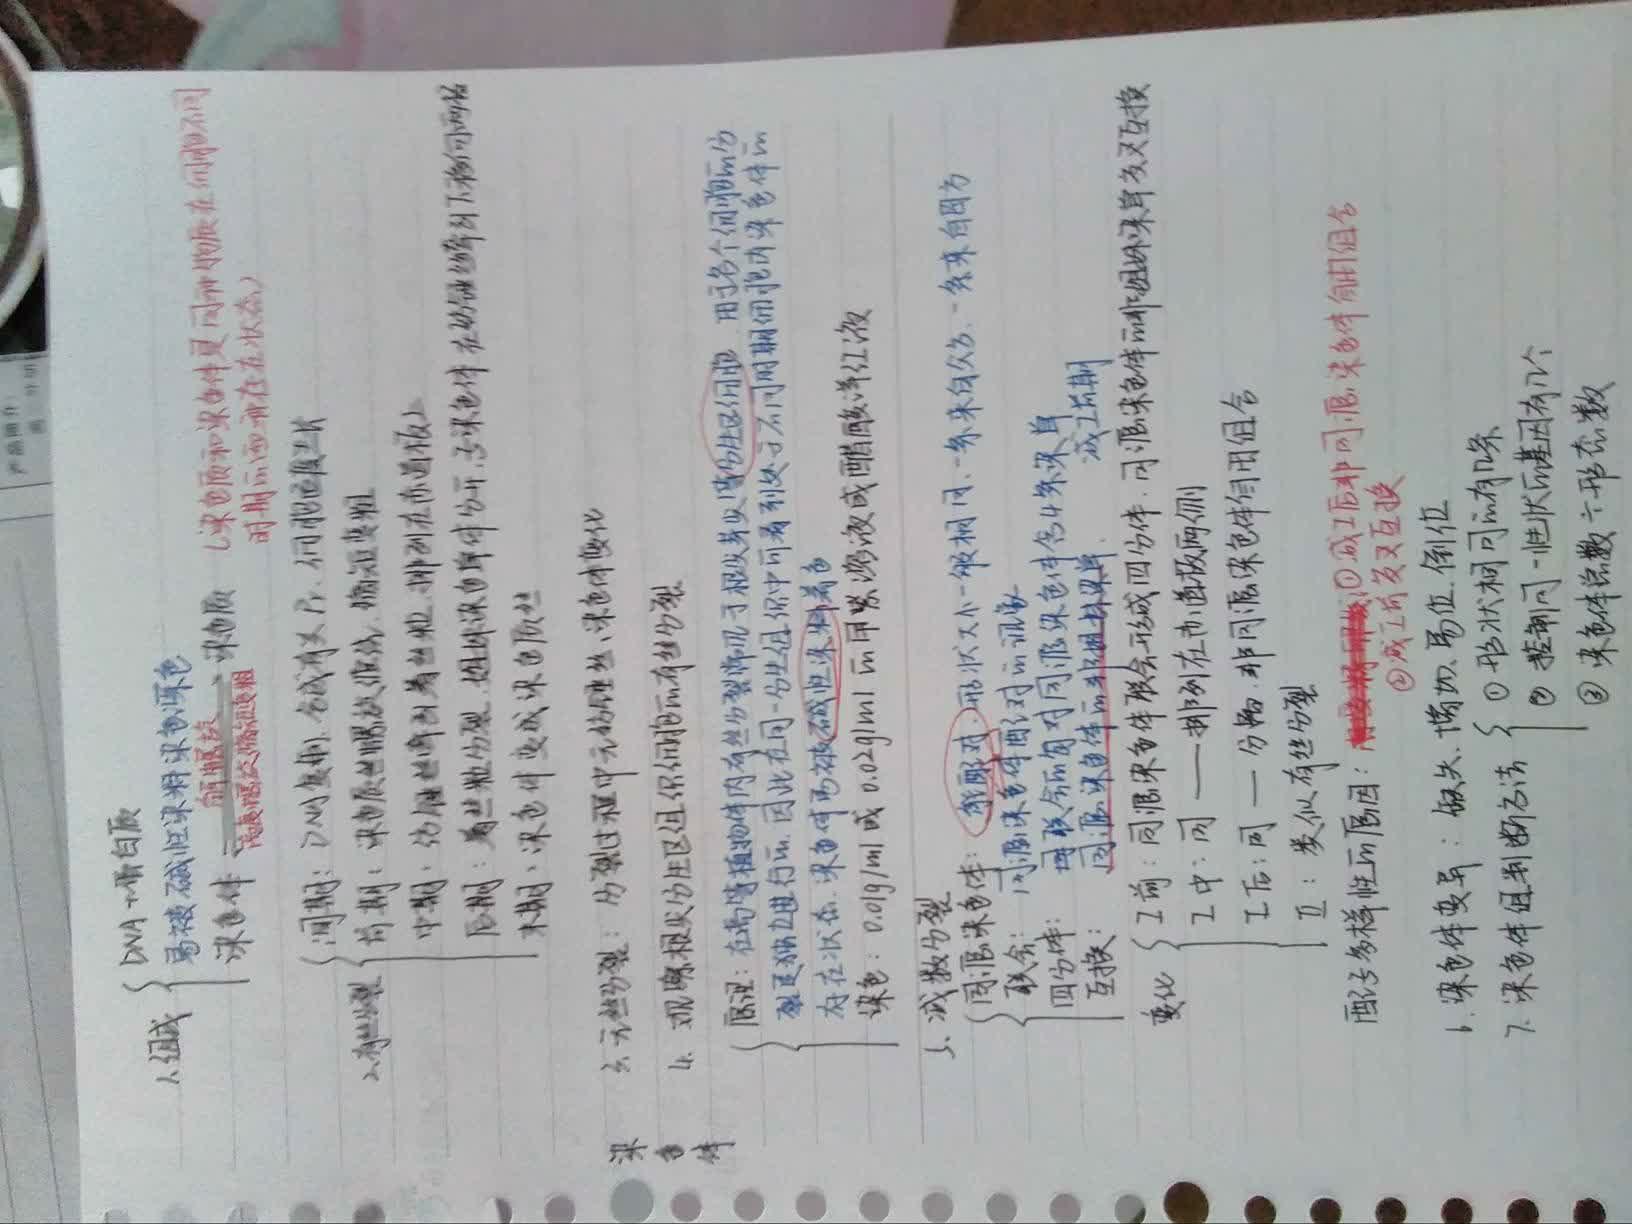 染色体
1.组成
DNA+蛋白质
易被碱性染料染色深色
染色体
解螺旋
高度螺旋、缩短变粗
染色质
(染色质和染色体是同种物质在细胞不同
时期的两种存在状态)
2.有丝分裂
间期:DNA复制,合成有关Pr,细胞适度生长
前期:染色质丝螺旋缠绕,缩短变粗
中期:纺锤丝牵引着丝粒,排列在赤道板上
后期:着丝粒分裂,姐妹染色单体分开,子染色体在纺锤丝牵引下移向两极
末期:染色体变成染色质丝
3.无丝分裂:分裂过程中无纺锤丝、染色体变化
4.观察根尖分生区组织细胞的有丝分裂
原理:在高等植物体内有丝分裂常见于根尖芽尖等分生区细胞,由于各个细胞的分
裂是独立进行的,因此在同一分生组织中可看到处于不同时期细胞内染色体的
存在状态,染色体可被碱性染料着色
染色:0.01g/ml或0.02g/ml的甲紫溶液或醋酸洋红液
5.减数分裂
同源染色体:能配对,形状大小一般相同,一条来自父方,一条来自母方
联会:同源染色体两两配对的现象
四分体:联会的每对同源染色体含4条染色单体
互换:同源染色体的非姐妹染色单体
减Ⅰ前期
变化
Ⅰ前:同源染色体联会形成四分体,同源染色体的非姐妹染色单体交叉互换
Ⅰ中:同——排列在赤道板两侧
Ⅰ后:同——分离,非同源染色体自由组合
Ⅱ:类似有丝分裂
配子多样性的原因:①减Ⅰ后非同源染色体自由组合
②减Ⅰ前交叉互换
6.染色体变异:缺失、增加、易位、倒位
7.染色体组判断方法
①形状相同的有几条
②控制同一性状的基因有几个
③染色体总数÷形态数